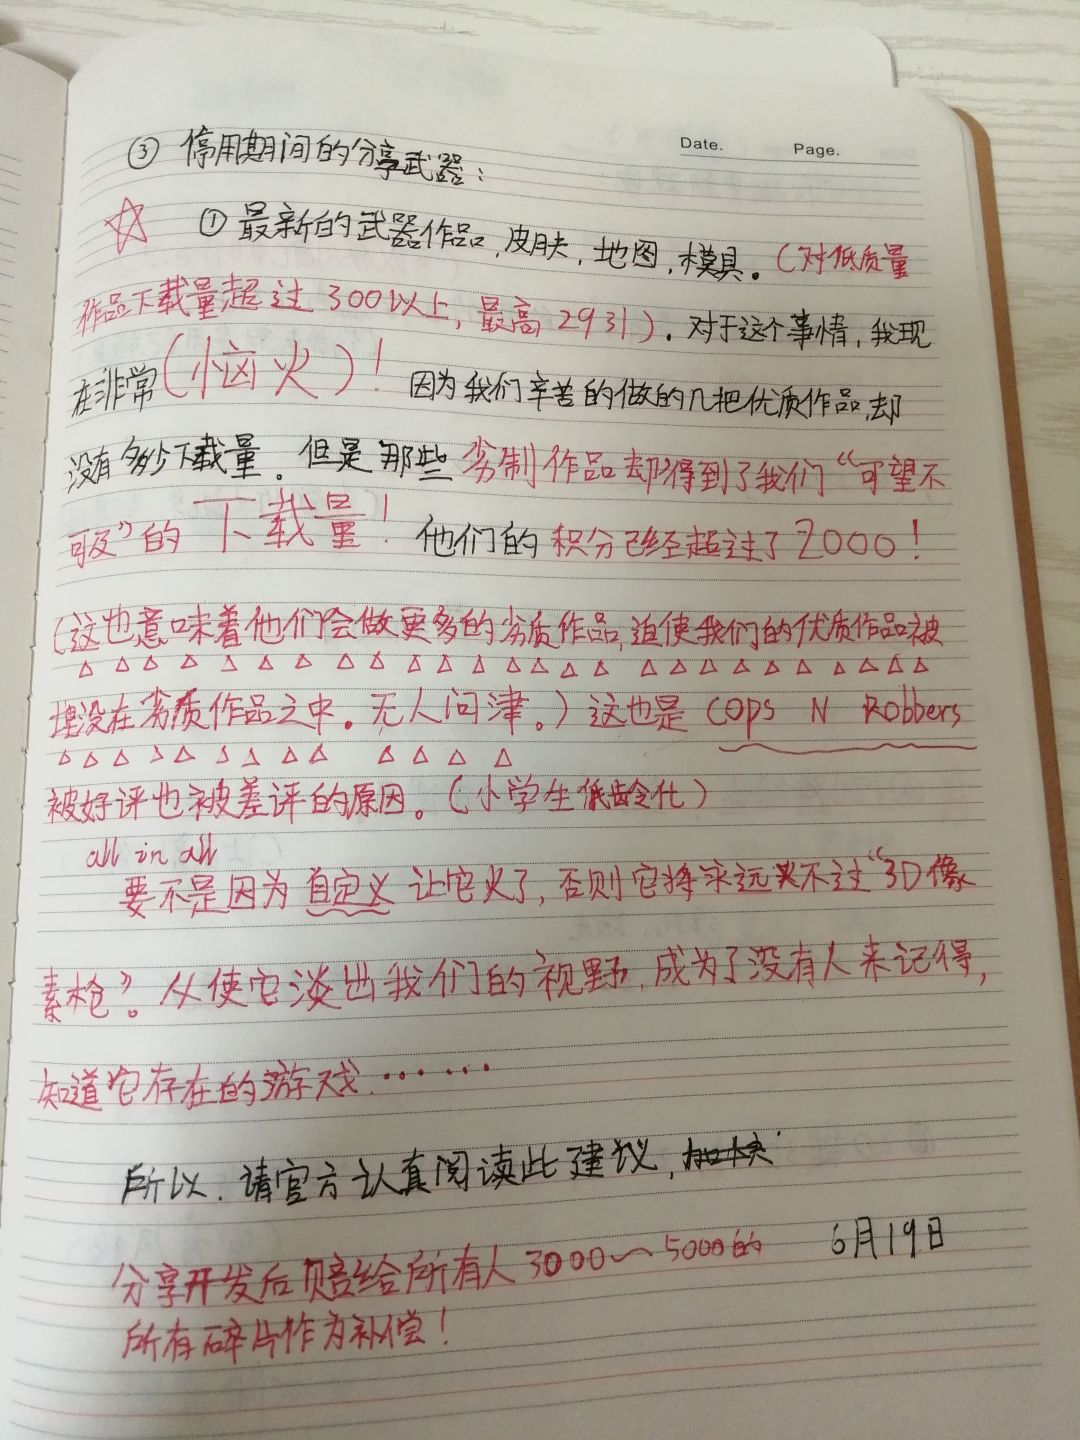 Date. Page.
③ 停用期间的分享武器：
☆ ① 最新的武器作品，皮肤，地图，模具。（对低质量
作品下载量超过300以上，最高2931）。对于这个事情，我现
在非常（恼火）！因为我们辛苦的做的几把优质作品，却
没有多少下载量。但是那些劣制作品却得到了我们“可望不
可及”的下载量！他们的积分已经超过了2000！
（这也意味着他们会做更多的劣质作品，迫使我们的优质作品被
埋没在劣质作品之中。无人问津。）这也是 Cops N Robbers
被好评也被差评的原因。（小学生低龄化）
all in all
要不是因为自定义让它火了，否则它将永远火不过“3D像
素枪”。从使它淡出我们的视野，成为了没有人来记得，
知道它存在的游戏……
所以，请官方认真阅读此建议，
6月19日
分享开发后赔给所有人3000～5000的
所有碎片作为补偿！